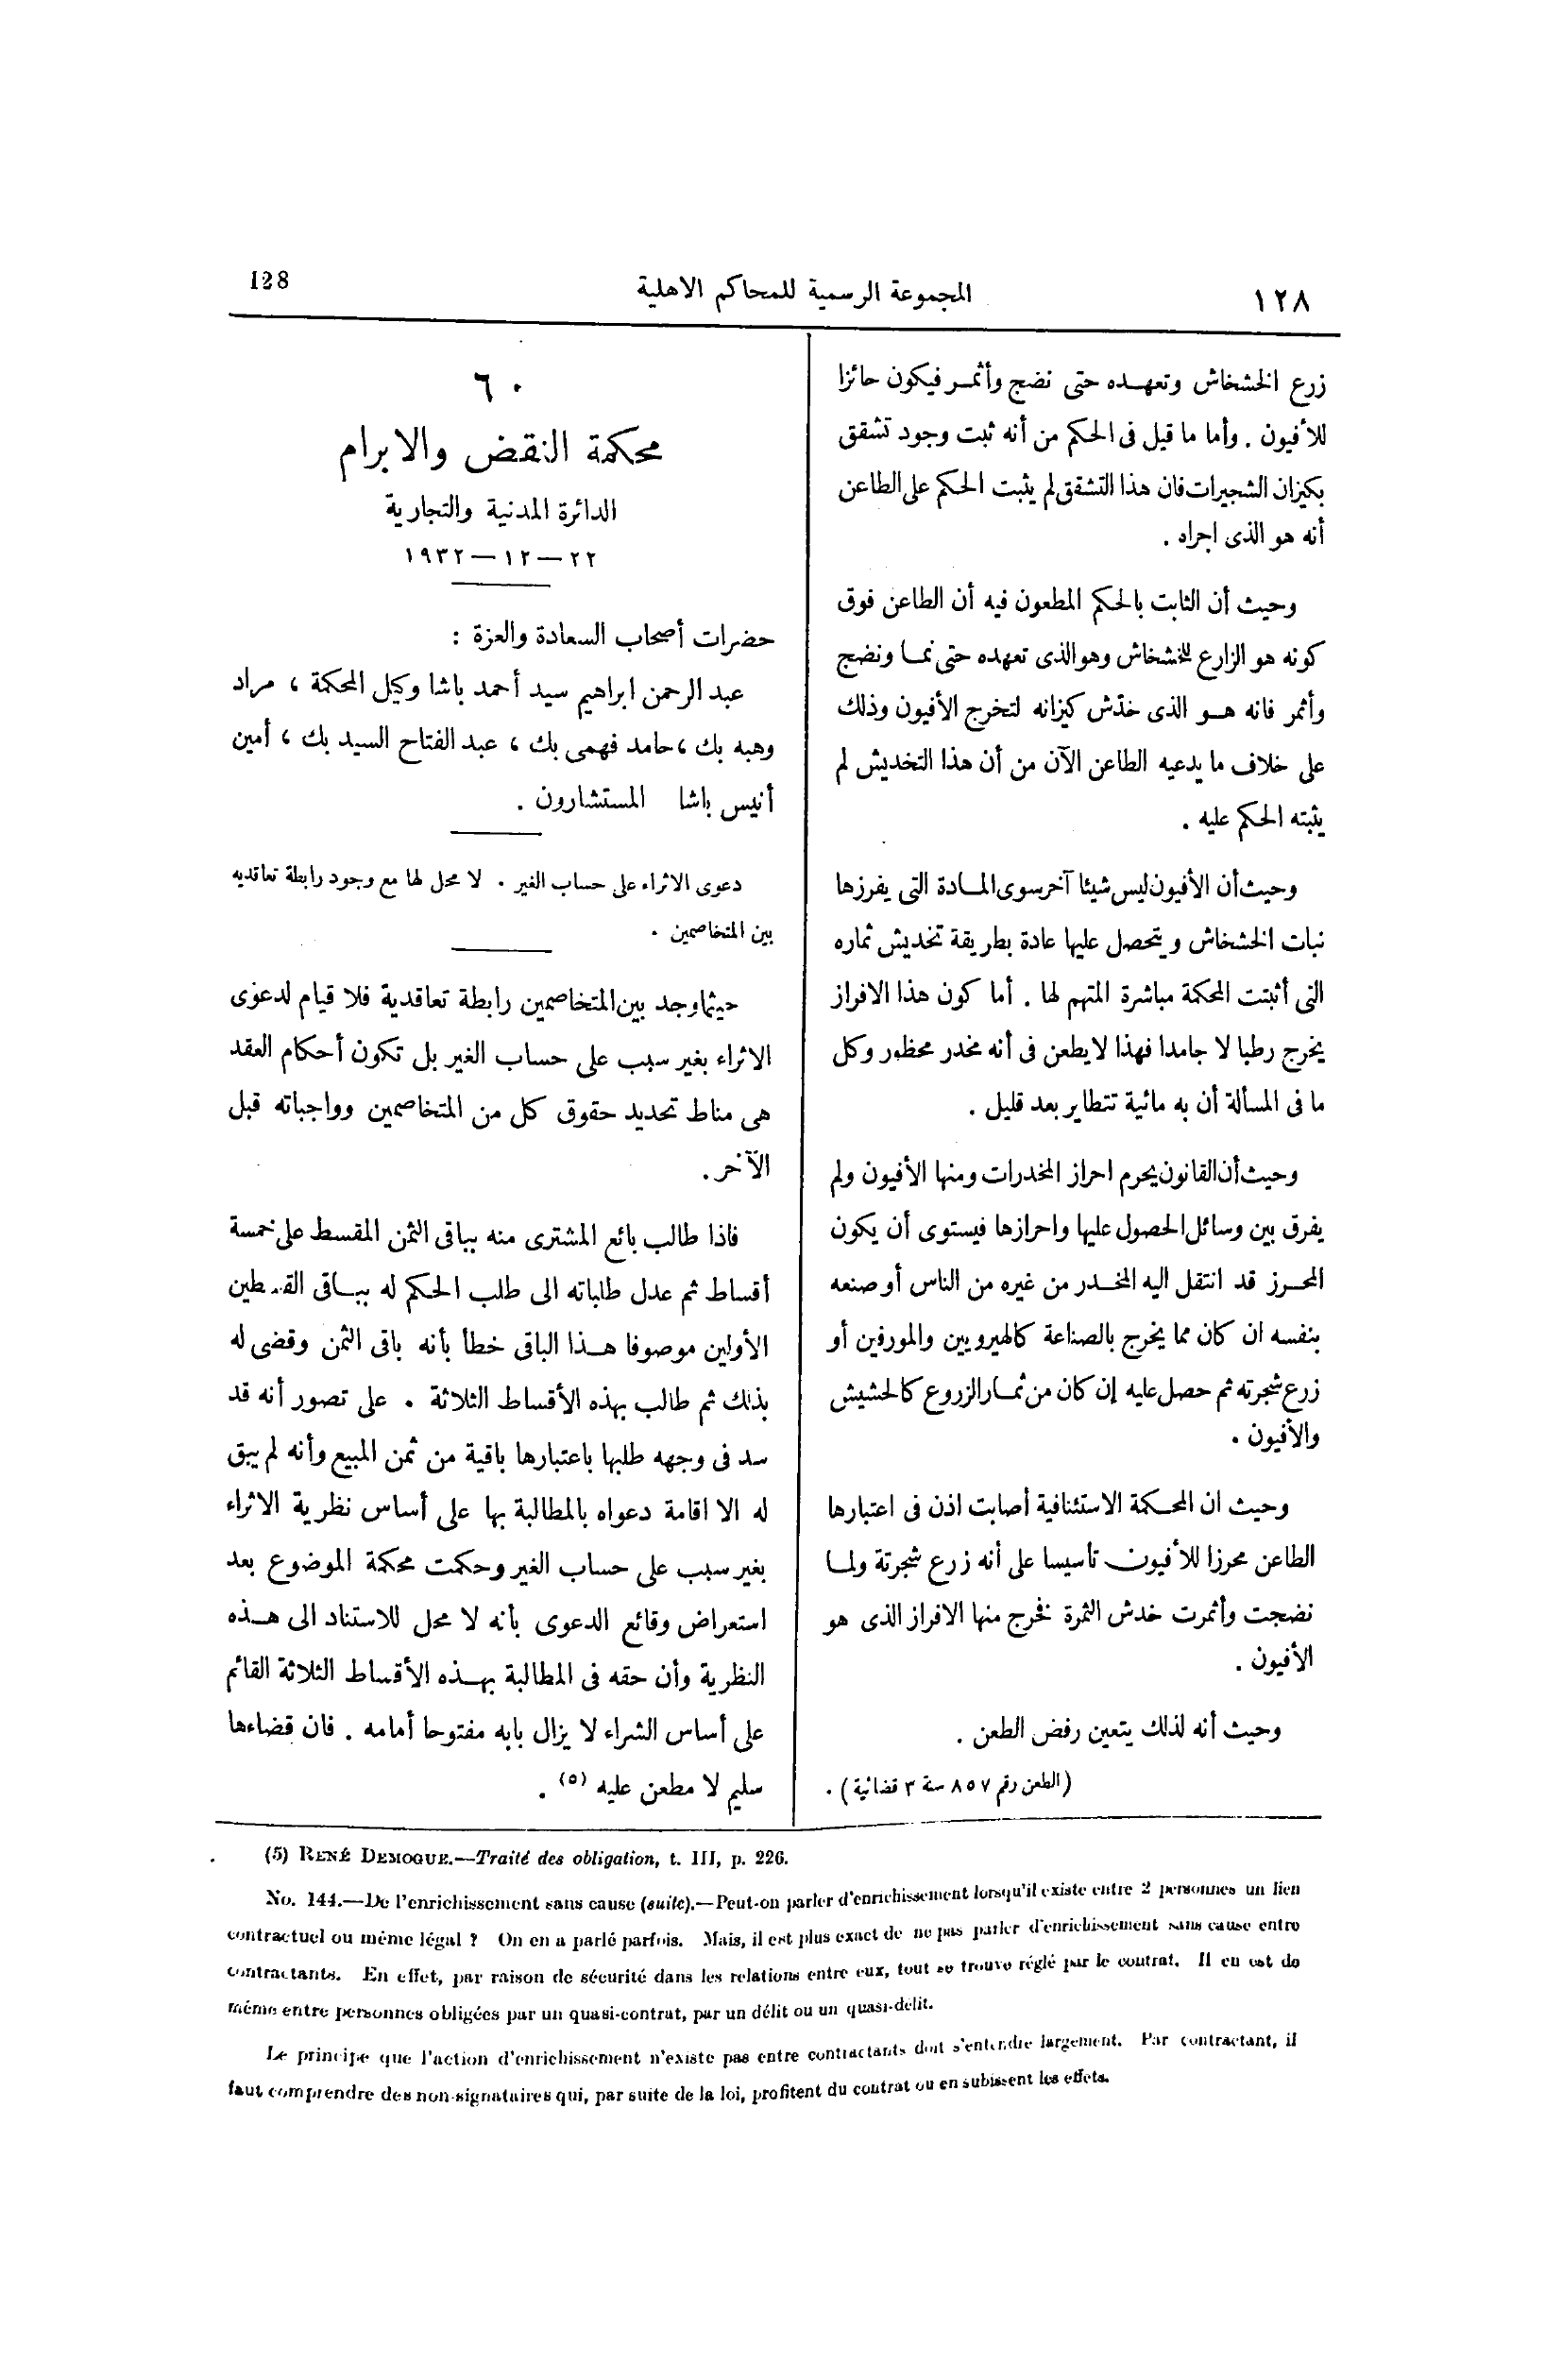 ١٢٨
المجموعة الرسمية للمحاكم الاهلية
128
زرع الخشخاش وتعهده حتى نضج وأثمر فيكون حائزا
للأفيون . وأما ما قيل فى الحكم من أنه ثبت وجود تشقق
بكيزان الشجيرات فان هذا التشقق لم يثبت الحكم على الطاعن
أنه هو الذى اجراه .
وحيث أن الثابت بالحكم المطعون فيه أن الطاعن فوق
كونه هو الزارع للخشخاش وهو الذى تعهده حتى نما ونضج
وأثمر فانه هو الذى خدّش كيزانه لتخرج الأفيون وذلك
على خلاف ما يدعيه الطاعن الآن من أن هذا التخديش لم
يثبته الحكم عليه .
وحيث أن الأفيون ليس شيئا آخر سوى المادة التى يفرزها
نبات الخشخاش ويتحصل عليها عادة بطريقة تخديش ثماره
التى أثبتت المحكمة مباشرة المتهم لها . أما كون هذا الافراز
يخرج رطبا لا جامدا فهذا لا يطعن فى أنه مخدر محظور وكل
ما فى المسألة أن به مائية تتطاير بعد قليل .
وحيث أن القانون يحرم احراز المخدرات ومنها الأفيون ولم
يفرق بين وسائل الحصول عليها واحرازها فيستوى أن يكون
المحرز قد انتقل اليه المخدر من غيره من الناس أو صنعه
بنفسه ان كان مما يخرج بالصناعة كالهيرويين والمورفين أو
زرع شجرته ثم حصل عليه إن كان من ثمار الزروع كالحشيش
والأفيون .
وحيث ان المحكمة الاستئنافية أصابت اذن فى اعتبارها
الطاعن محرزا للأفيون تأسيسا على أنه زرع شجرتة ولما
نضجت وأثمرت خدش الثمرة فخرج منها الافراز الذى هو
الأفيون .
وحيث أنه لذلك يتعين رفض الطعن .
(الطعن رقم ٨٥٧ سنة ٣ قضائية) .
٦٠
محكمة النقض والابرام
الدائرة المدنية والتجارية
٢٢ — ١٢ — ١٩٣٢
حضرات أصحاب السعادة والعزة :
عبد الرحمن ابراهيم سيد أحمد باشا وكيل المحكمة ، مراد
وهبه بك ، حامد فهمى بك ، عبد الفتاح السيد بك ، أمين
أنيس باشا المستشارون .
دعوى الاثراء على حساب الغير . لا محل لها مع وجود رابطة تعاقديه
بين المتخاصمين .
حيثما وجد بين المتخاصمين رابطة تعاقدية فلا قيام لدعوى
الاثراء بغير سبب على حساب الغير بل تكون أحكام العقد
هى مناط تحديد حقوق كل من المتخاصمين وواجباته قبل
الآخر .
فاذا طالب بائع المشترى منه بباقى الثمن المقسط على خمسة
أقساط ثم عدل طلباته الى طلب الحكم له بباقى القسطين
الأولين موصوفا هذا الباقى خطأ بأنه باقى الثمن وقضى له
بذلك ثم طالب بهذه الأقساط الثلاثة . على تصور أنه قد
سد فى وجهه طلبها باعتبارها باقية من ثمن المبيع وأنه لم يبق
له الا اقامة دعواه بالمطالبة بها على أساس نظرية الاثراء
بغير سبب على حساب الغير وحكمت محكمة الموضوع بعد
استعراض وقائع الدعوى بأنه لا محل للاستناد الى هذه
النظرية وأن حقه فى المطالبة بهذه الأقساط الثلاثة القائم
على أساس الشراء لا يزال بابه مفتوحا أمامه . فان قضاءها
سليم لا مطعن عليه (٥) .
(5) RENÉ DEMOGUE.—Traité des obligation, t. III, p. 226.
No. 144.—De l'enrichissement sans cause (suite).—Peut-on parler d'enrichissement lorsqu'il existe entre 2 personnes un lien
contractuel ou même légal ? On en a parlé parfois. Mais, il est plus exact de ne pas parler d'enrichissement sans cause entre
contractants. En effet, par raison de sécurité dans les relations entre eux, tout se trouve réglé par le contrat. Il en est de
même entre personnes obligées par un quasi-contrat, par un délit ou un quasi-délit.
Le principe que l'action d'enrichissement n'existe pas entre contractants doit s'entendre largement. Par contractant, il
faut comprendre des non-signataires qui, par suite de la loi, profitent du contrat ou en subissent les effets.